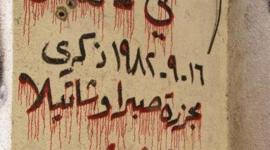 في
١٩٨٢.٩.١٦ ذكرى
مجزرة صبرا وشاتيلا